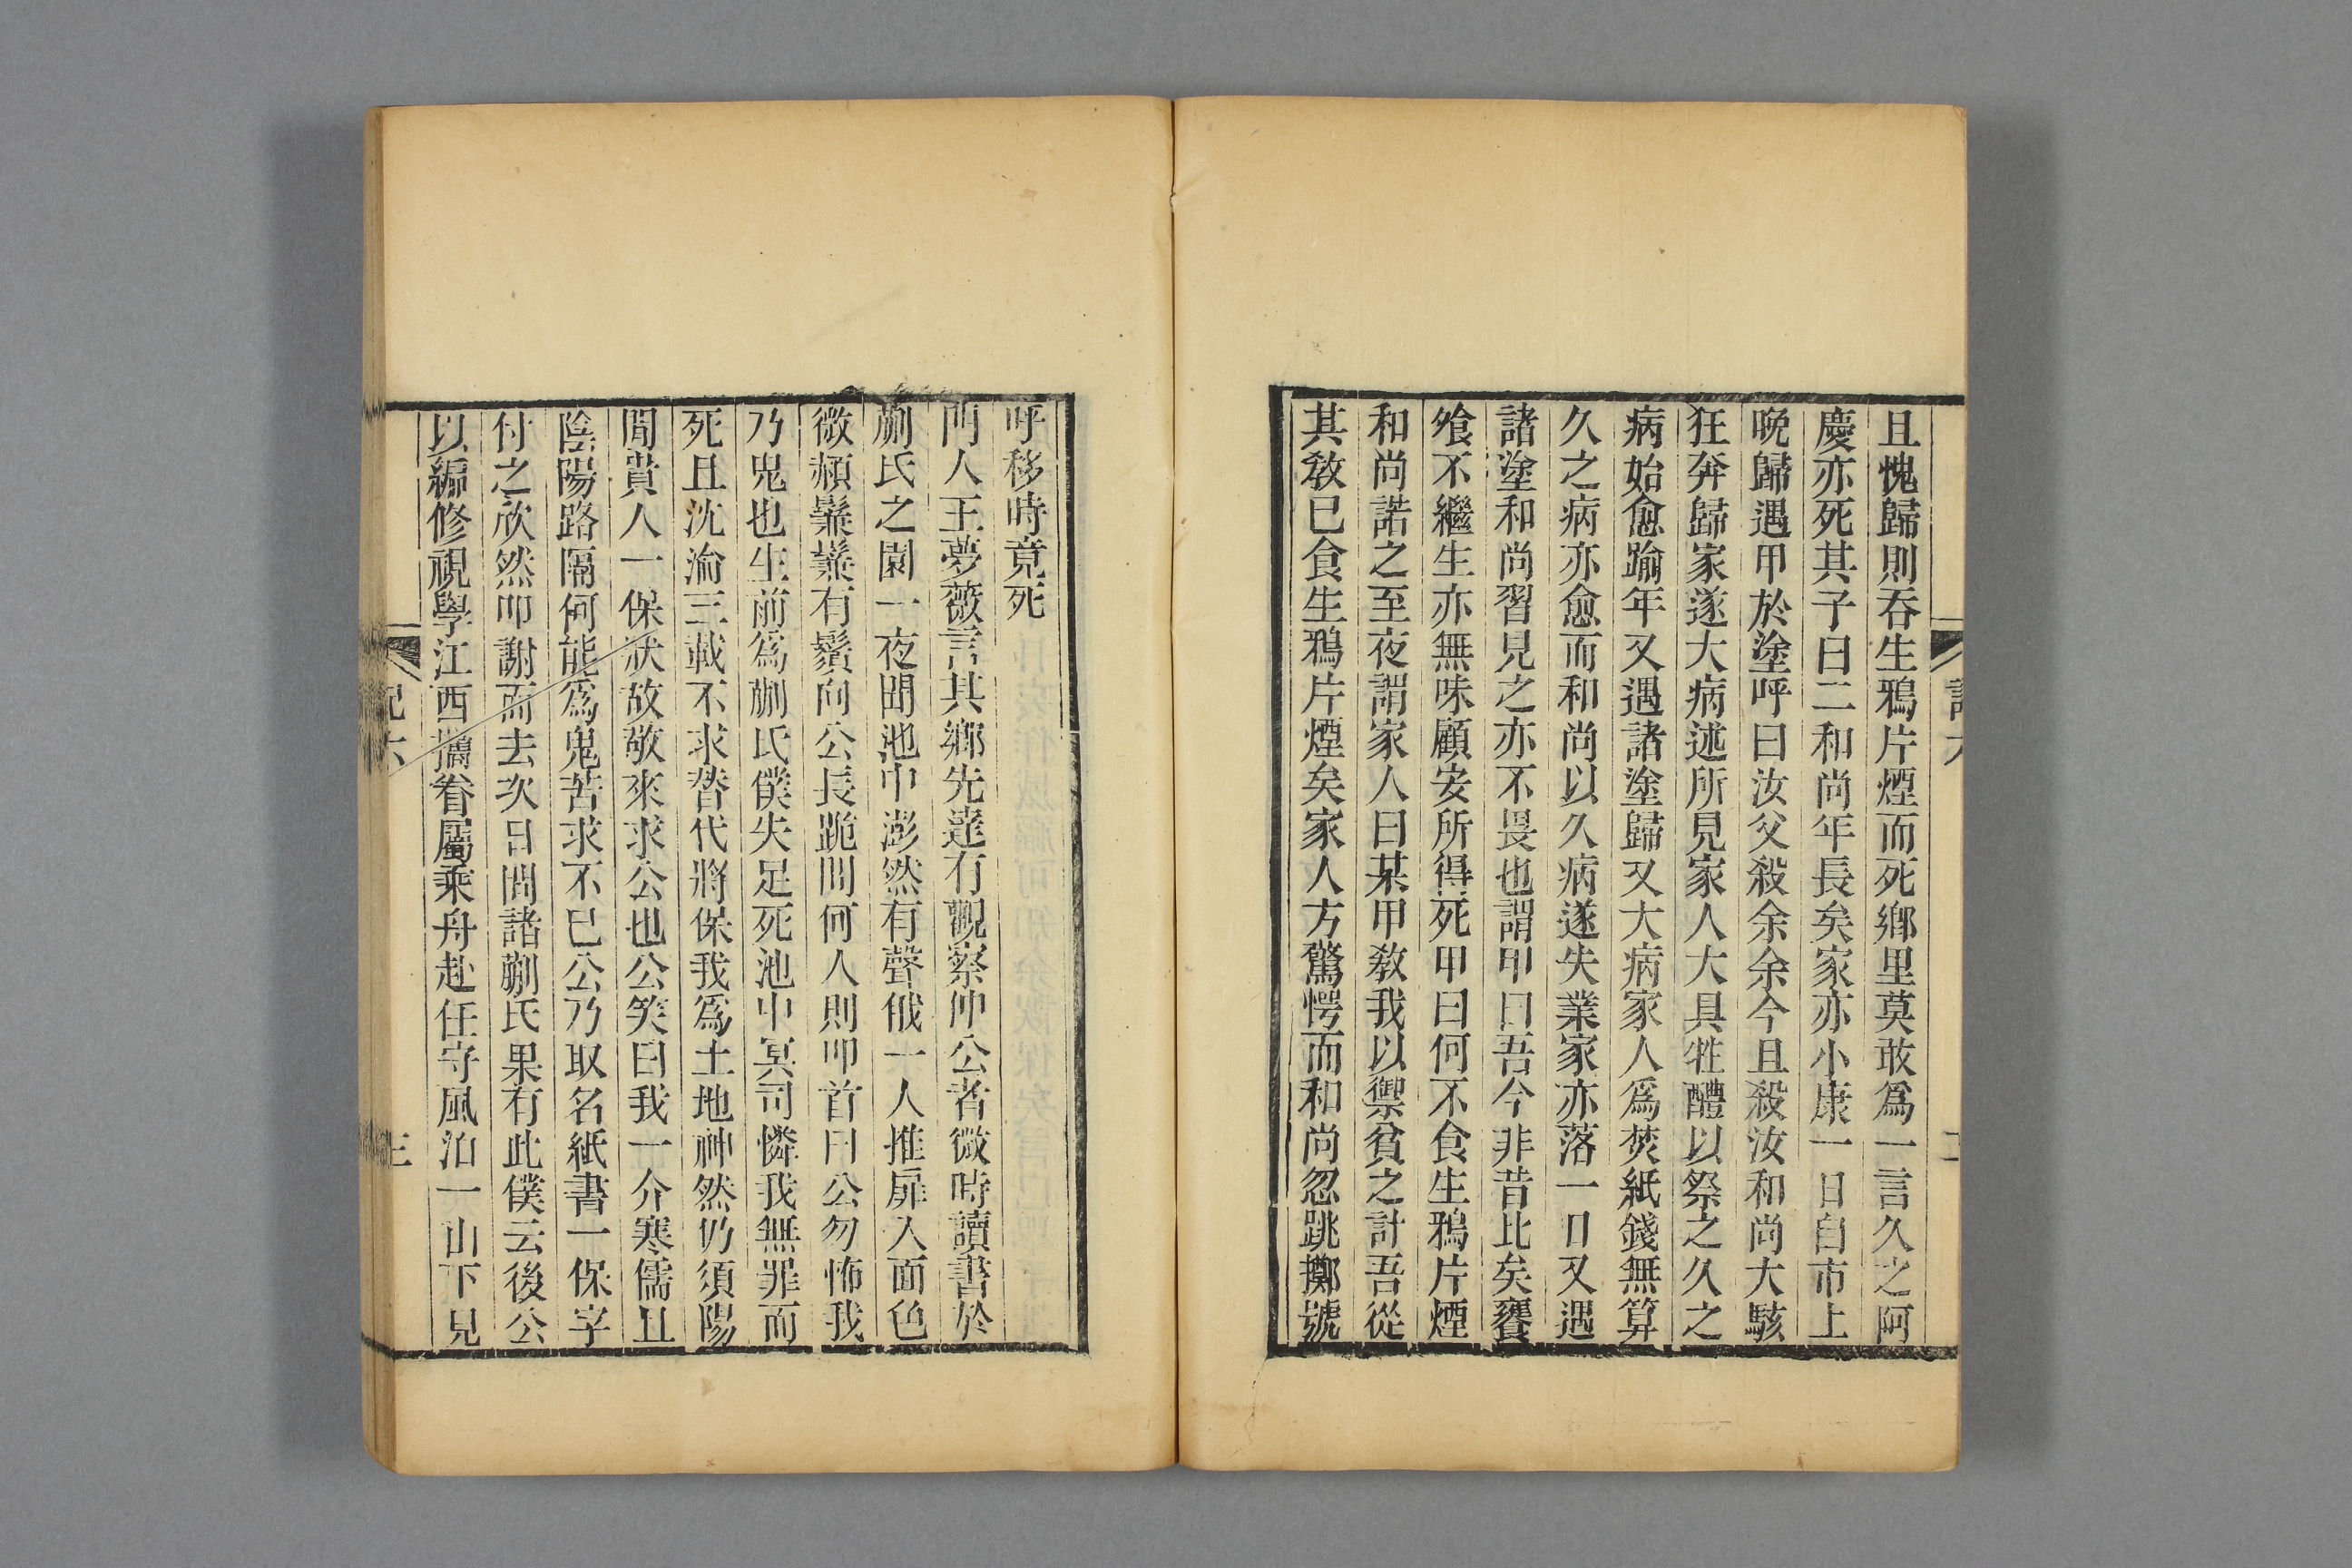 且愧歸則吞生鴉片煙而死鄉里莫敢爲一言久之阿
慶亦死其子曰二和尚年長矣家亦小康一日自市上
晚歸遇甲於塗呼曰汝父殺余余今且殺汝和尚大駭
狂奔歸家遂大病述所見家人大具牲醴以祭之久之
病始愈踰年又遇諸塗歸又大病家人爲焚紙錢無算
久之病亦愈而和尚以久病遂失業家亦落一日又遇
諸塗和尚習見之亦不畏也謂甲曰吾今非昔比矣饔
飧不繼生亦無味顧安所得死甲曰何不食生鴉片煙
和尚諾之至夜謂家人曰某甲敎我以禦貧之計吾從
其敎已食生鴉片煙矣家人方驚愕而和尚忽跳擲號
呼移時竟死
門人王夢薇言其鄉先達有觀察仲公者微時讀書於
蒯氏之園一夜聞池中澎然有聲俄一人推扉入面色
微赬鬖鬖有鬚向公長跪問何人則叩首曰公勿怖我
乃鬼也生前爲蒯氏僕失足死池中冥司憐我無罪而
死且沈淪三載不求替代將保我爲土地神然仍須陽
間貴人一保狀故敬來求公也公笑曰我一介寒儒且
陰陽路隔何能爲鬼苦求不已公乃取名紙書一保字
付之欣然叩謝而去次日問諸蒯氏果有此僕云後公
以編修視學江西攜眷屬乘舟赴任守風泊一山下見
記六
三